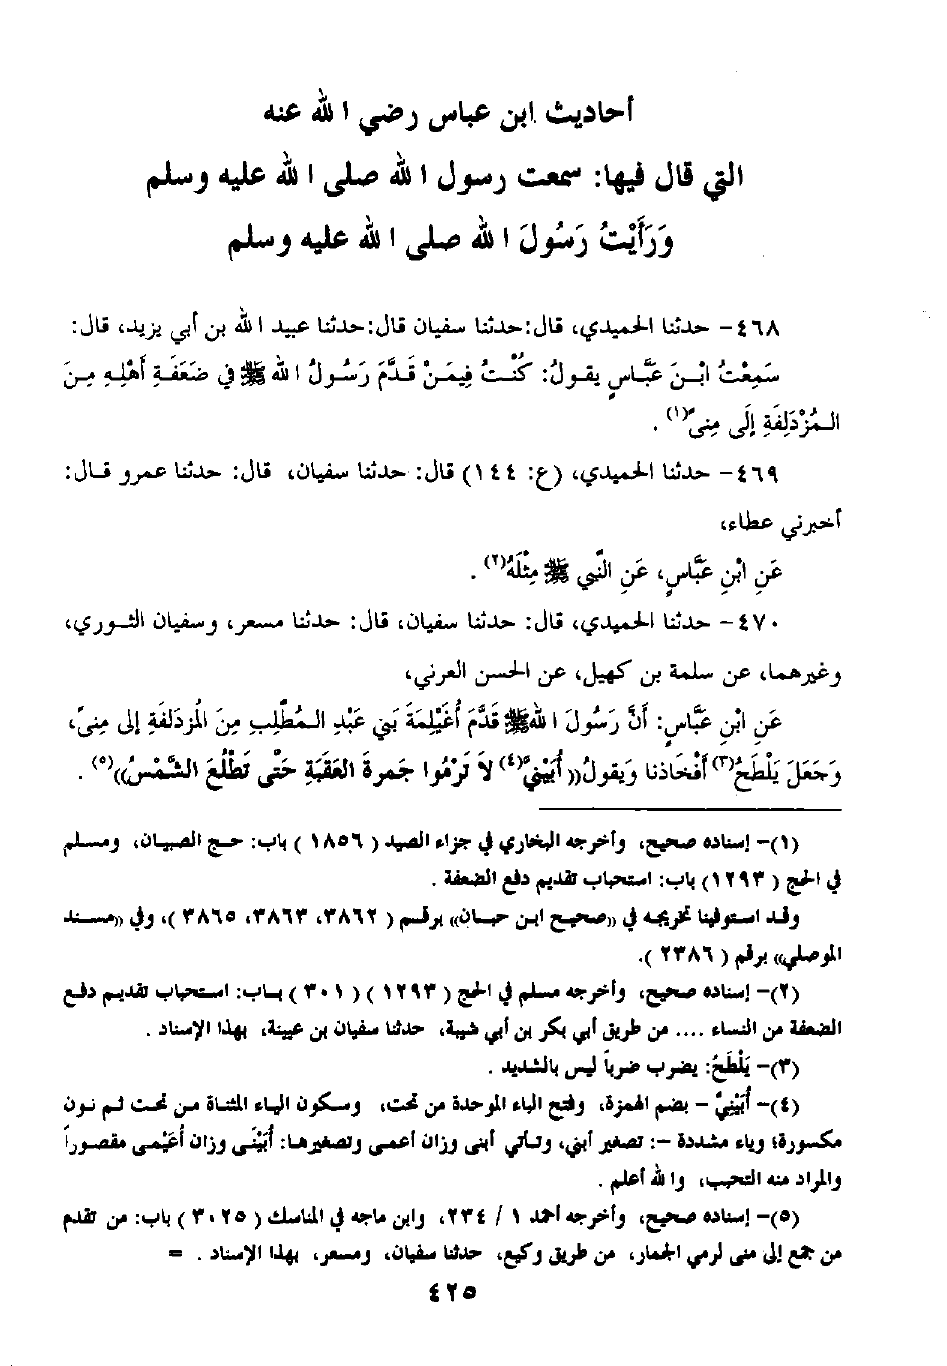 أحاديث ابن عباس رضي الله عنه
التي قال فيها: سمعت رسول الله صلى الله عليه وسلم
وَرَأَيْتُ رَسُولَ الله صلى الله عليه وسلم
٤٦٨- حدثنا الحميدي، قال:حدثنا سفيان قال:حدثنا عبيد الله بن أبي يزيد، قال:
سَمِعْتُ ابْنَ عَبَّاسٍ يقولُ: كُنْتُ فِيمَنْ قَدَّمَ رَسُولُ الله ﷺ في ضَعَفَةِ أَهْلِهِ مِنَ
المُزْدَلِفَةِ إِلَى مِنىً(١) .
٤٦٩- حدثنا الحميدي، (ع: ١٤٤) قال: حدثنا سفيان، قال: حدثنا عمرو قال:
أخبرني عطاء،
عَنِ ابْنِ عَبَّاسٍ، عَنِ النَّبي ﷺ مِثْلَهُ(٢) .
٤٧٠- حدثنا الحميدي، قال: حدثنا سفيان، قال: حدثنا مسعر، وسفيان الثوري،
وغيرهما، عن سلمة بن كهيل، عن الحسن العرني،
عَنِ ابْنِ عَبَّاسٍ: أَنَّ رَسُولَ اللهﷺ قَدَّمَ أُغَيْلِمَةَ بَنِي عَبْدِ المُطَّلِبِ مِنَ المُزدَلفَةِ إلى مِنىً،
وَجَعَلَ يَلْطَحُ(٣) أَفْخَاذنا وَيقولُ((أُبَيْنِيَّ(٤) لاَ تَرْمُوا جَمرةَ العَقَبَةِ حَتَّى تَطْلُعَ الشَّمْسُ))(٥) .
(١)- إسناده صحيح، وأخرجه البخاري في جزاء الصيد ( ١٨٥٦ ) باب: حج الصبيان، ومسلم
في الحج ( ١٢٩٣) باب: استحباب تقديم دفع الضعفة .
وقد استوفينا تخريجه في ((صحيح ابن حبان)) برقم ( ٣٨٦٢، ٣٨٦٣، ٣٨٦٥ )، وفي ((مسند
الموصلي)) برقم ( ٢٣٨٦ ).
(٢)- إسناده صحيح، وأخرجه مسلم في الحج ( ١٢٩٣ )( ٣٠١ ) باب: استحباب تقديم دفع
الضعفة من النساء .... من طريق أبي بكر بن أبي شيبة، حدثنا سفيان بن عيينة، بهذا الإسناد .
(٣)- يَلْطَحُ: يضرب ضرباً ليس بالشديد .
(٤)- أُبَيْنِيَّ - بضم الهمزة، وفتح الباء الموحدة من تحت، وسكون الياء المثناة من تحت ثم نون
مكسورة؛ وياء مشددة -: تصغير أبني، وتأتي أبنى وزان أعمى وتصغيرها: أُبَيْنَى وزان أُعَيْمى مقصوراً
والمراد منه التحبب، والله أعلم .
(٥)- إسناده صحيح، وأخرجه أحمد ١ / ٢٣٤، وابن ماجه في المناسك ( ٣٠٢٥ ) باب: من تقدم
من جمع إلى منى لرمي الجمار، من طريق وكيع، حدثنا سفيان، ومسعر، بهذا الإسناد . =
٤٢٥